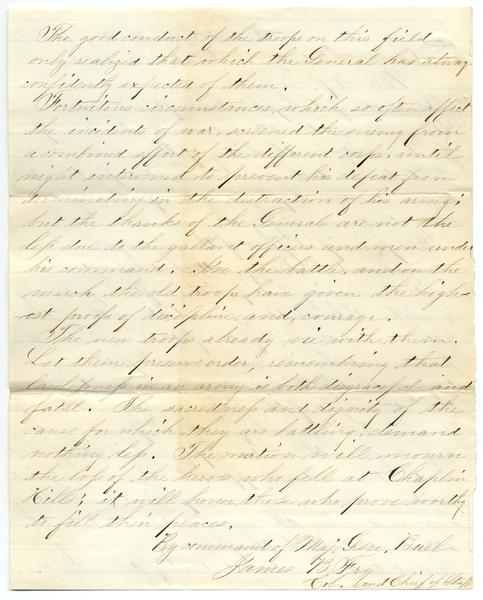 The good conduct of the troops on this field
only realized that which the General has alway
confidently expected of them.
Fortuitous circumstances, which so often affect
the incidents of war, screened the enemy from
a combined effort of the different corps, until
night intervened to prevent his defeat from
terminating in the distraction of his army;
but the thanks of the General are not the
less due to the gallant officers and men under
his command. In the battle, and on the
march the old troops have given the high-
est proofs of discipline and courage.
The new troops already vie with them.
Let them preserve order, remembring that
lawlessness in an army is both disgraceful and
fatal. The sacredness and dignity of the
cause for which they are battling, demand
nothing less. The nation will mourn
the loss of the heroes who fell at Chaplin
Hills; it will honor those who prove worthy
to fill their places.
By command of Maj. Gen. Buel
James B Fry
Col. and Chief of Staff